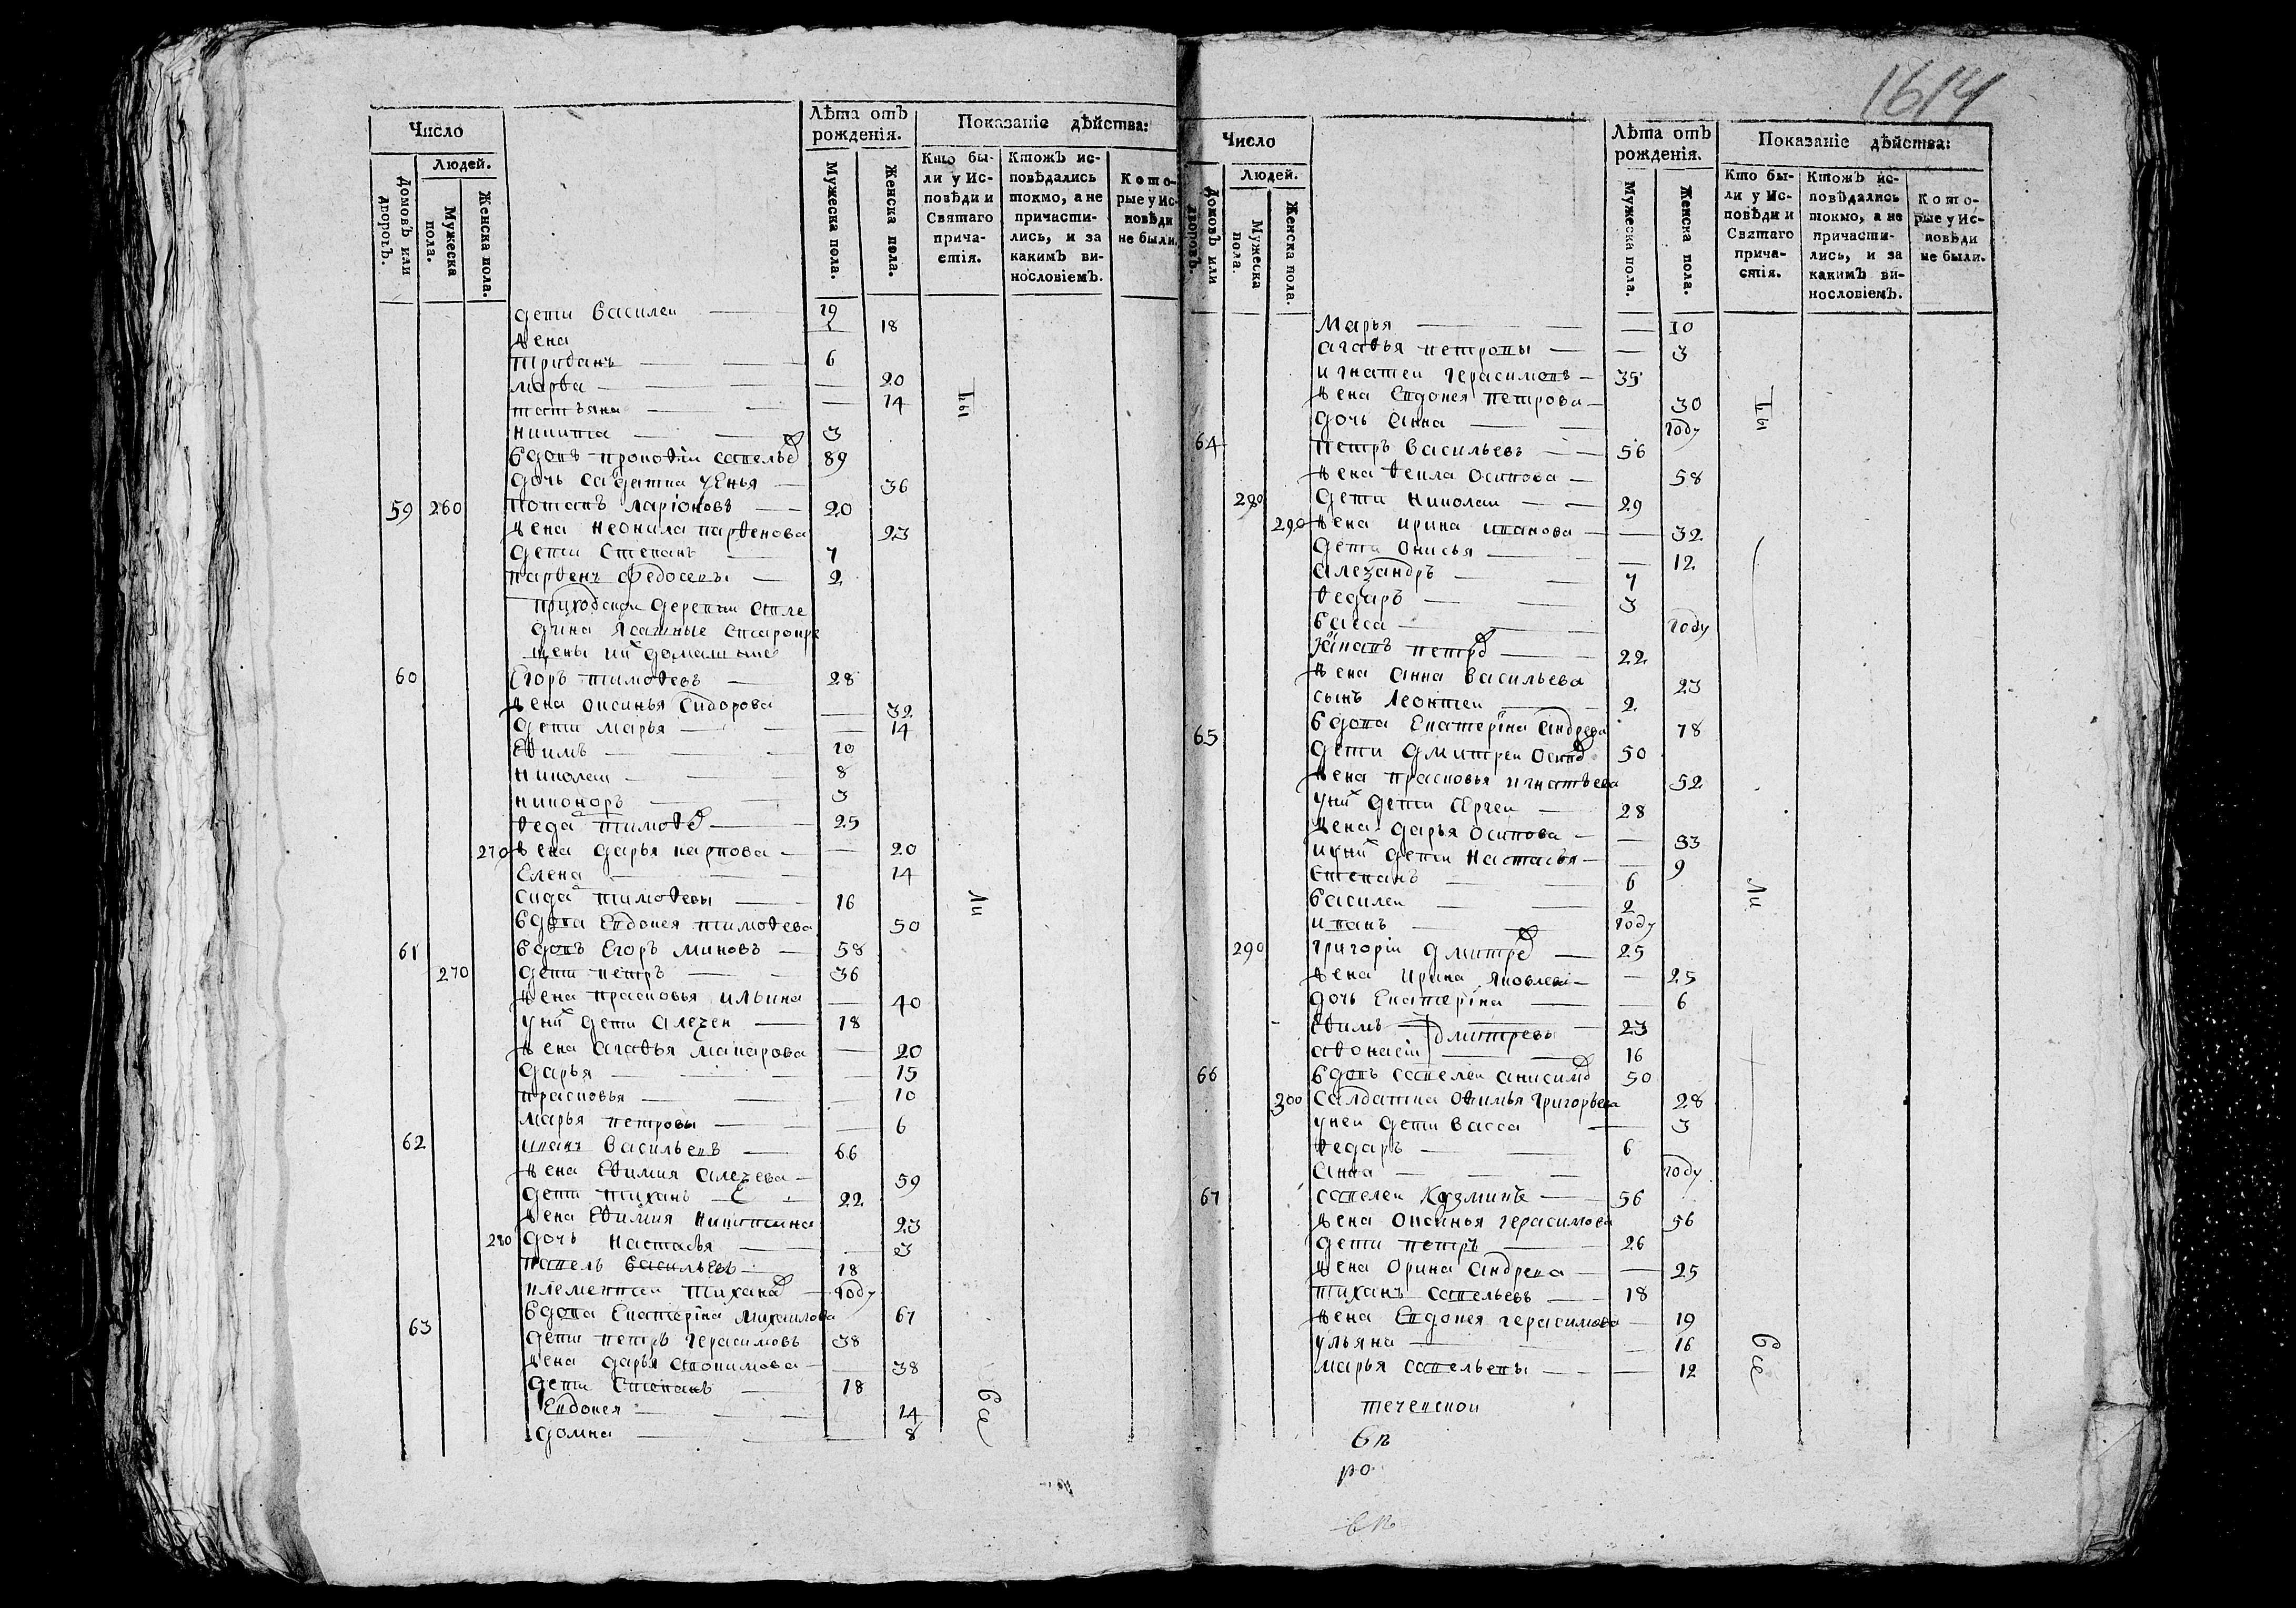 1614
Число
Людей.
Домовъ или дворовъ.
Мужеска пола.
Женска пола.
Лѣта отъ рожденія.
Мужеска пола.
Женска пола.
Показаніе дѣйства:
Кто бы-
ли у Ис-
повѣди и
Святаго
прича-
стія.
Ктожъ ис-
повѣдались
токмо, а не
причасти-
лись, и за
какимъ ви-
нословіемъ.
Кото-
рые у Ис-
повѣди
не были.
дети Василеи 19
жена 18
6
марѳа — 20
татьяна — 14
никита 3
вдовъ прокоѳіи савельев 89
дочь 36
59 260 потапъ ларіоновъ 20
жена неонила парѳенова 23
дети степанъ 7
парѳенъ федосеевы 2
приходской деревни
ясашные старокре
щены и их домашние
60 Егоръ тимоѳеевъ 28
жена оксинья Сидорова — 32
дети марья — 14
Еѳимъ 10
николаи 8
никоноръ 3
ѳеда тимоѳ 25
270 жена дарья карпова — 20
Елена 14
сида тимоѳевы 16
вдова Евдокея тимоѳева 50
61 вдовъ Егоръ миновъ 58
270 дети петръ 36
жена прасковья ильина — 40
у них дети алеѯеи 18
жена агаѳья макарова — 20
дарья — 15
прасковья — 10
марья петровы — 6
62 иванъ васильевъ 66
жена Еѳимия алеѯева 59
дети тиханъ 22
жена Еѳимия никитина 23
280 дочь настасья — 3
павелъ васильевъ 18
тихана году
63 вдова Екатеріна михаилова 67
дети петръ герасимовъ 38
жена дарья — 38
дети степанъ 18
Евдокея 14
домна — 8
ты
ли
все
Число
Людей.
Домовъ или дворовъ.
Мужеска пола.
Женска пола.
Лѣта отъ рожденія.
Мужеска пола.
Женска пола.
Показаніе дѣйства:
Кто бы-
ли у Ис-
повѣди и
Святаго
прича-
стія.
Ктожъ ис-
повѣдались
токмо, а не
причасти-
лись, и за
какимъ ви-
нословіемъ.
Кото-
рые у Ис-
повѣди
не были.
марья — 10
агаѳья петровы — 3
игнатеи герасимовъ 35
жена Евдокея петрова 30
дочь анна году
64 петръ васильевъ 56
жена ѳекла осипова 58
280 дети николаи 29
290 жена ирина иванова — 32
дети онисья — 12
алеѯандръ 7
ѳедаръ 3
васса году
иванъ петр 22
жена анна васильева 23
сынъ леонтеи 2
65 вдова Екатеріна андреева 78
дети дмитреи осип 50
жена прасковья игнатьева 52
у них дети сергеи 28
жена дарья осипова — 33
и у них дети настасья — 9
степанъ 6
василеи 2
иванъ году
290 григоріи дмитре 25
жена ирина яковлева — 25
дочь Екатеріна — 6
Еѳимъ 23
дмитревы
аѳонасіи 16
66 вдовъ савелеи анисимо 50
300 салдатка оѳимья григорьева 28
у неи дети васса — 3
ѳедаръ 6
анна году
67 савелеи козминъ 56
жена оксинья герасимова 56
дети петръ 26
жена орина андреева — 25
тиханъ савельевъ 18
жена Евдокея герасимова — 19
ульяна — 16
марья савельевы — 12
теченской
ты
ли
все